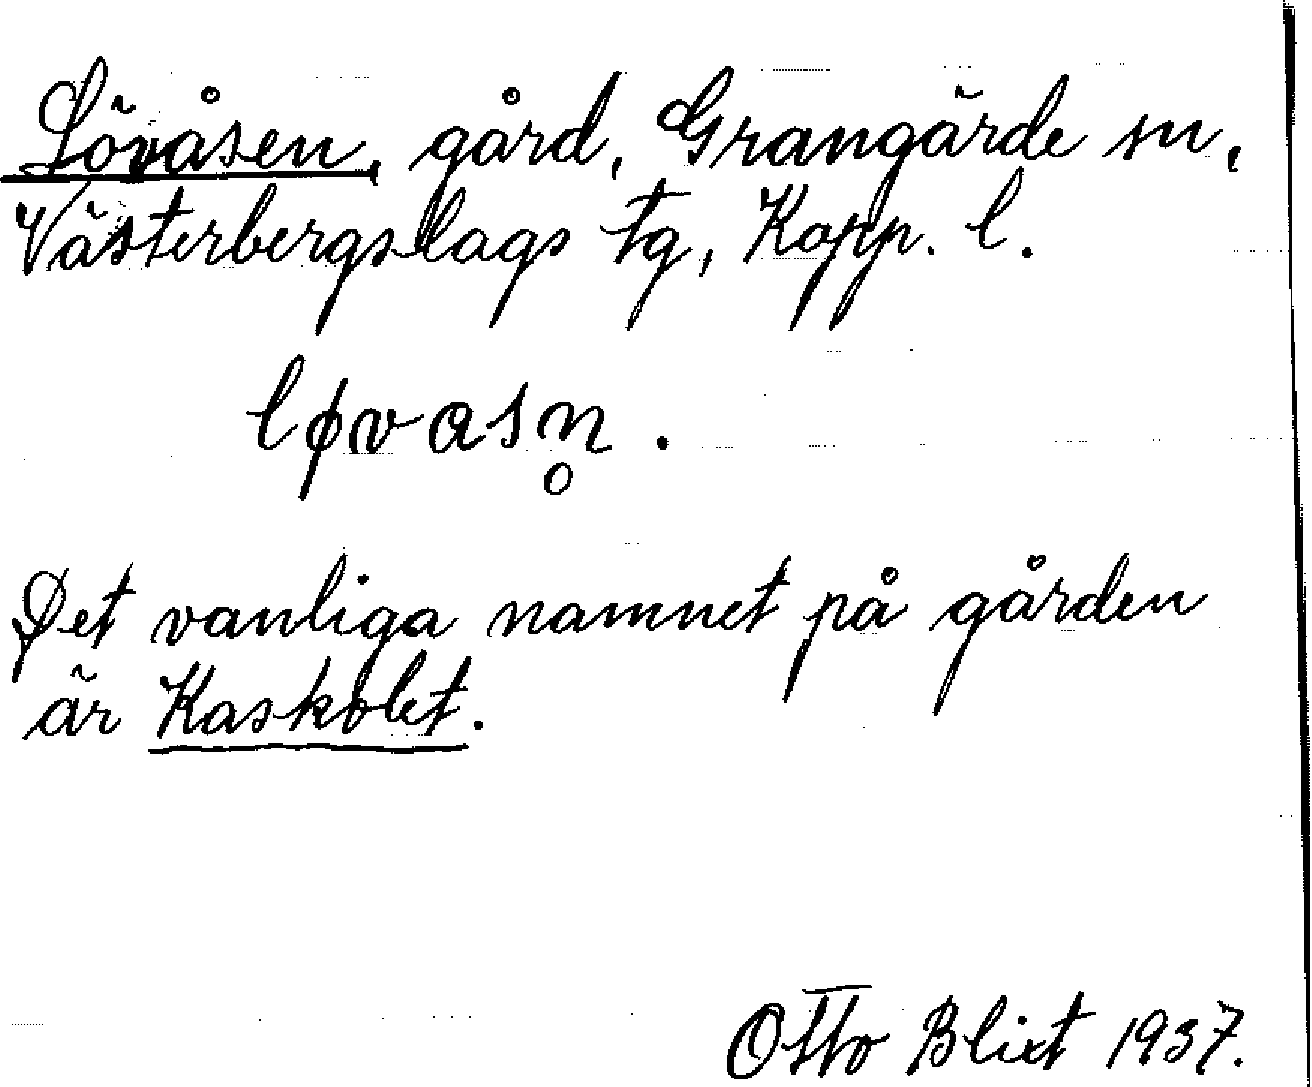 Lövåsen, gård, Grangärde sn,
Västerbergslags tg, Kopp. l.
løvasn̥.
Det vanliga namnet på gården
är Kaskolet.
Otto Blixt 1937.